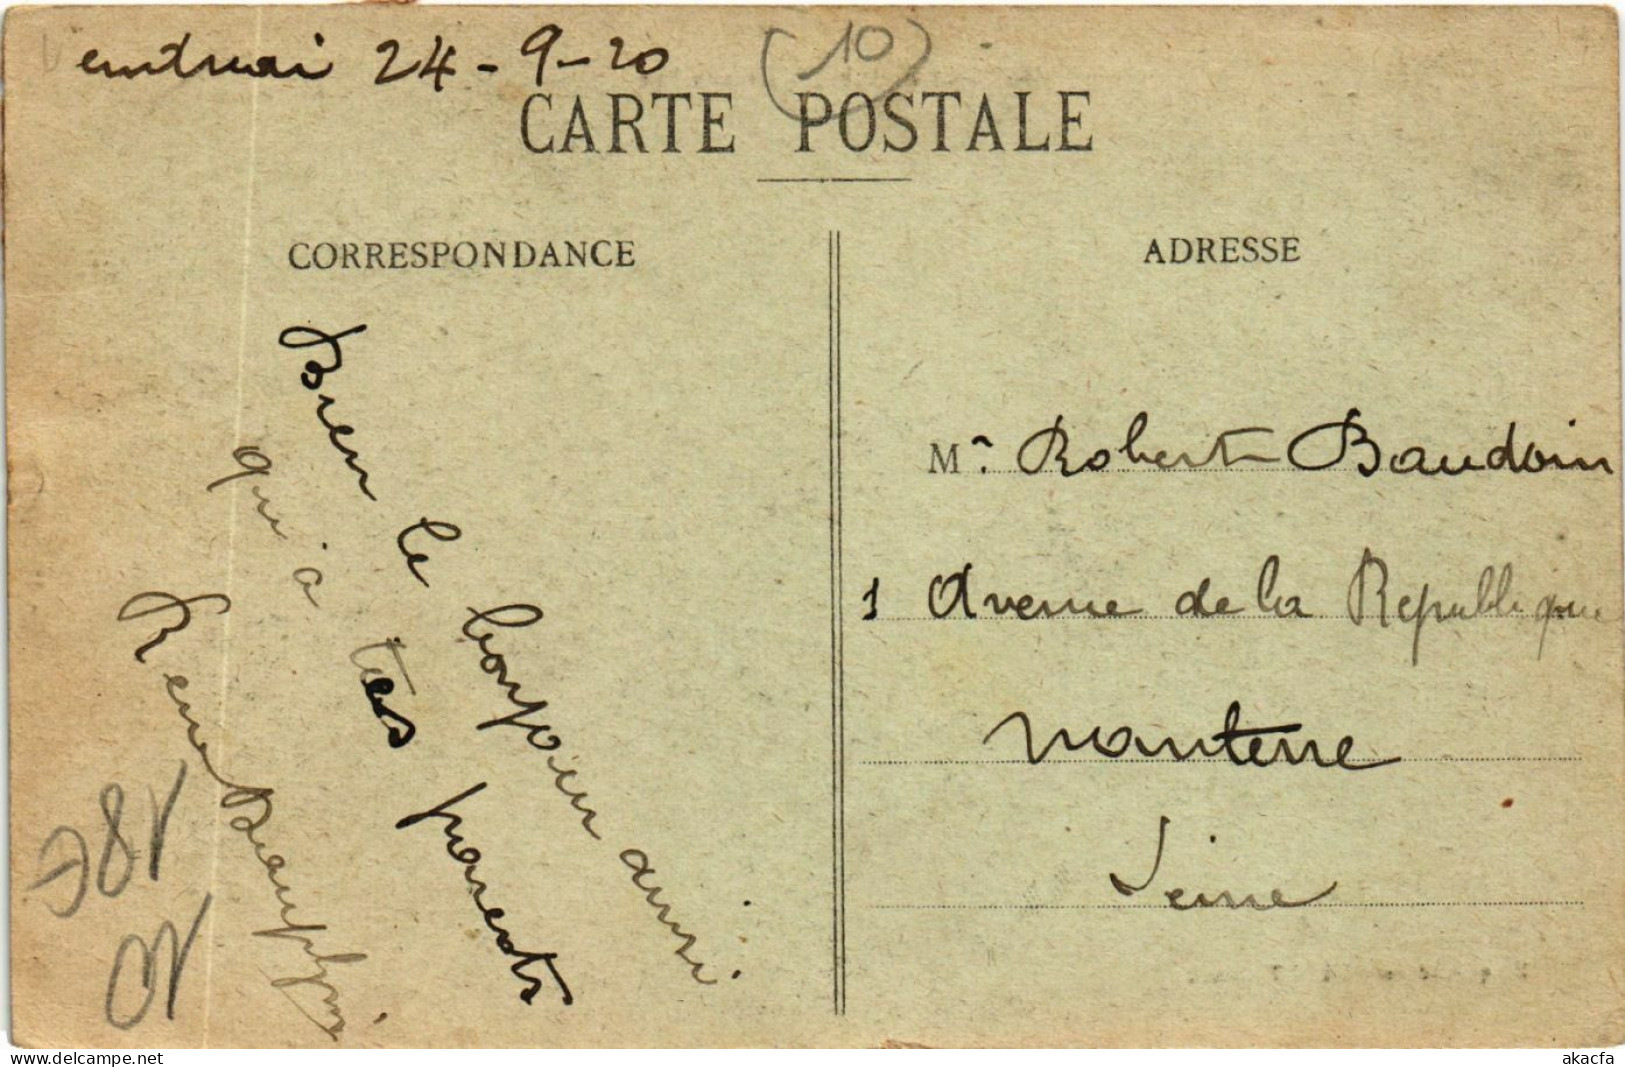 Vendredi 24-9-20
(10)
CARTE POSTALE
CORRESPONDANCE
Bien le bonjour ainsi
qu'à tes parents
René
10
ADRESSE
Mr. Robert Baudoin
1 Avenue de la République
Nanterre
Seine
delcampe.net
akacfa